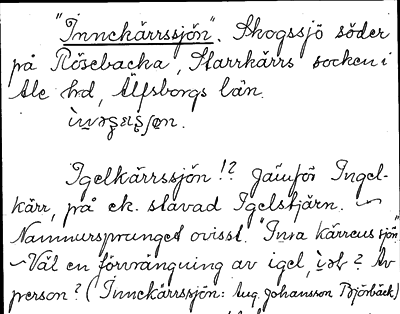 "Innekärrssjön". Skogssjö söder
på Rösebacka, Starrkärrs socken i
Ale hd, Älfsborgs län.
Igelkärrssjön!? Jämför Ingel-
kärr, på ek. stavad Igelstjärn. ~
Namnursprunget ovisst. "Inra Kärreus sjön"
~ Väl en förvrängning av igel, ? Av
person? (Innekärrssjön: Aug. Johansson Björbäck)